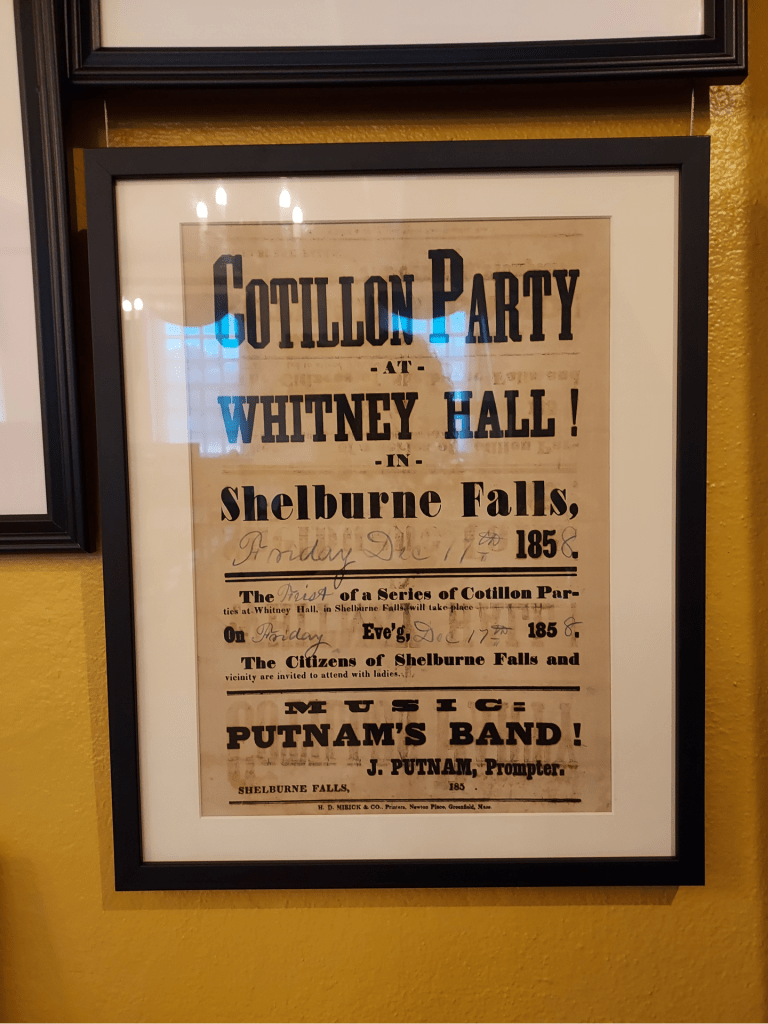 COTILLON PARTY
- AT -
WHITNEY HALL!
- IN -
Shelburne Falls,
Friday Dec 17th 1858.
The First of a Series of Cotillon Par-
ties at Whitney Hall, in Shelburne Falls, will take place
On Friday Eve'g, Dec 17th 1858.
The Citizens of Shelburne Falls and
vicinity are invited to attend with ladies.
MUSIC:
PUTNAM'S BAND!
J. PUTNAM, Prompter.
SHELBURNE FALLS, 185 .
H. D. MIRICK & CO., Printers, Newton Place, Greenfield, Mass.